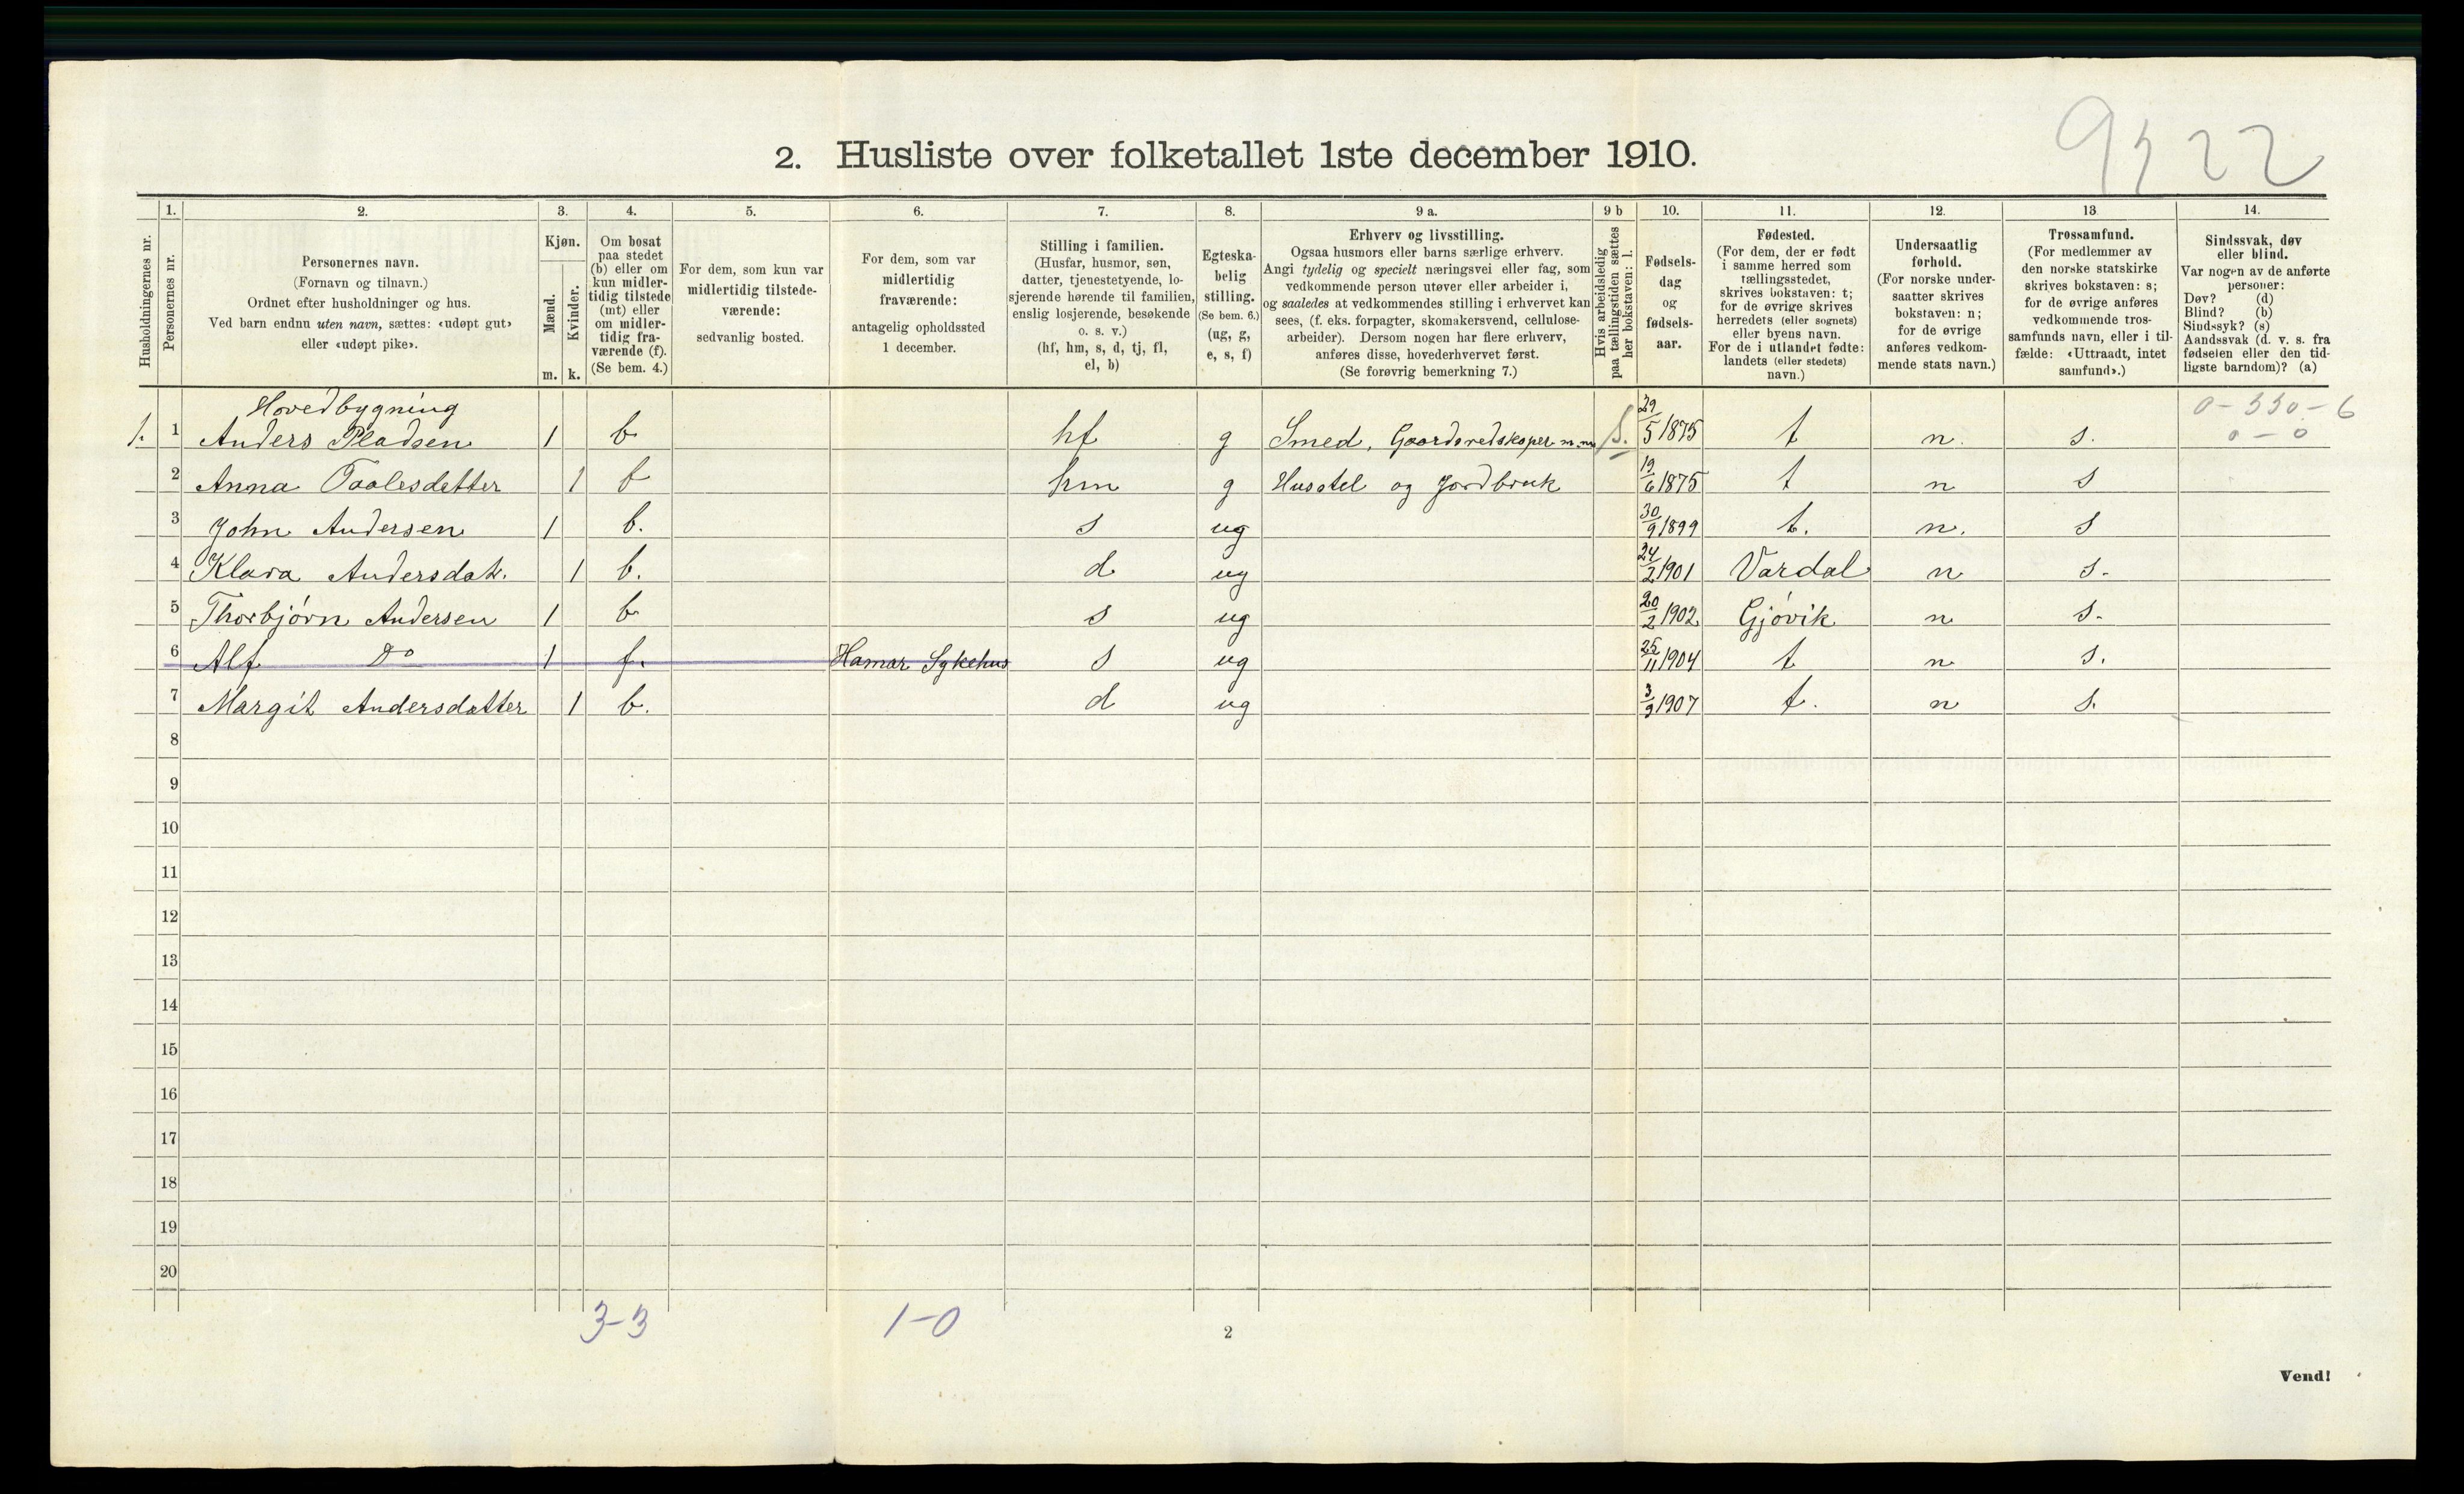 9522
2. Husliste over folketallet 1ste december 1910.
1. 2. 3. 4. 5. 6. 7. 8. 9 a. 9 b 10. 11. 12. 13 14.
Husholdningernes nr.
Personernes nr.
Personernes navn.
(Fornavn og tilnavn.)
Ordnet efter husholdninger og hus.
Ved barn endnu uten navn, sættes: «udøpt gut»
eller «udøpt pike».
Kjøn.
Mænd.
Kvinder.
m. k.
Om bosat
paa stedet
(b) eller om
kun midler-
tidig tilstede
(mt) eller
om midler-
tidig fra-
værende (f).
(Se bem. 4.)
For dem, som kun var
midlertidig tilstede-
værende:
sedvanlig bosted.
For dem, som var
midlertidig
fraværende:
antagelig opholdssted
1 december.
Stilling i familien.
(Husfar, husmor, søn,
datter, tjenestetyende, lo-
sjerende hørende til familien,
enslig losjerende, besøkende
o. s. v.)
(hf, hm, s, d, tj, fl,
el, b)
Egteska-
belig
stilling.
(Se bem. 6.)
(ug, g,
e, s, f)
Erhverv og livsstilling.
Ogsaa husmors eller barns særlige erhverv.
Angi tydelig og specielt næringsvei eller fag, som
vedkommende person utøver eller arbeider i,
og saaledes at vedkommendes stilling i erhvervet kan
sees, (f. eks. forpagter, skomakersvend, cellulose-
arbeider). Dersom nogen har flere erhverv,
anføres disse, hovederhvervet først.
(Se forøvrig bemerkning 7.)
Hvis arbeidsledig
paa tællingstiden sættes
her bokstaven: l.
Fødsels-
dag
og
fødsels-
aar.
Fødested.
(For dem, der er født
i samme herred som
tællingsstedet,
skrives bokstaven: t;
for de øvrige skrives
herredets (eller sognets)
eller byens navn.
For de i utlandet fødte:
landets (eller stedets)
navn.)
Undersaatlig
forhold.
(For norske under-
saatter skrives
bokstaven: n;
for de øvrige
anføres vedkom-
mende stats navn.)
Trossamfund.
(For medlemmer av
den norske statskirke
skrives bokstaven: s;
for de øvrige anføres
vedkommende tros-
samfunds navn, eller i til-
fælde: «Uttraadt, intet
samfund».)
Sindssvak, døv
eller blind.
Var nogen av de anførte
personer:
Døv? (d)
Blind? (b)
Sindssyk? (s)
Aandssvak (d. v. s. fra
fødselen eller den tid-
ligste barndom)? (a)
Hovedbygning
0-330-6
1. 1 Anders Pladsen 1 b hf g Smed, Gaardsredskaper m.m. 29/5 1875 t n. s. 0-0
2 Anna Paalesdatter 1 b hm g Husstel og Jordbruk 19/6 1875 t n s
3 John Andersen 1 b. s ug 30/9 1899 t. n. s
4 Klara Andersdat. 1 b. d ug 24/2 1901 Vardal n s.
5 Thorbjørn Andersen 1 b s ug 20/2 1902 Gjøvik n s.
6 Alf Do 1 f. Hamar Sykehus s ug 25/11 1904 t n s.
7 Margit Andersdatter 1 b. d ug 3/9 1907 t. n s.
8
9
10
11
12
13
14
15
16
17
18
19
20
3-3 1-0
2
Vend!